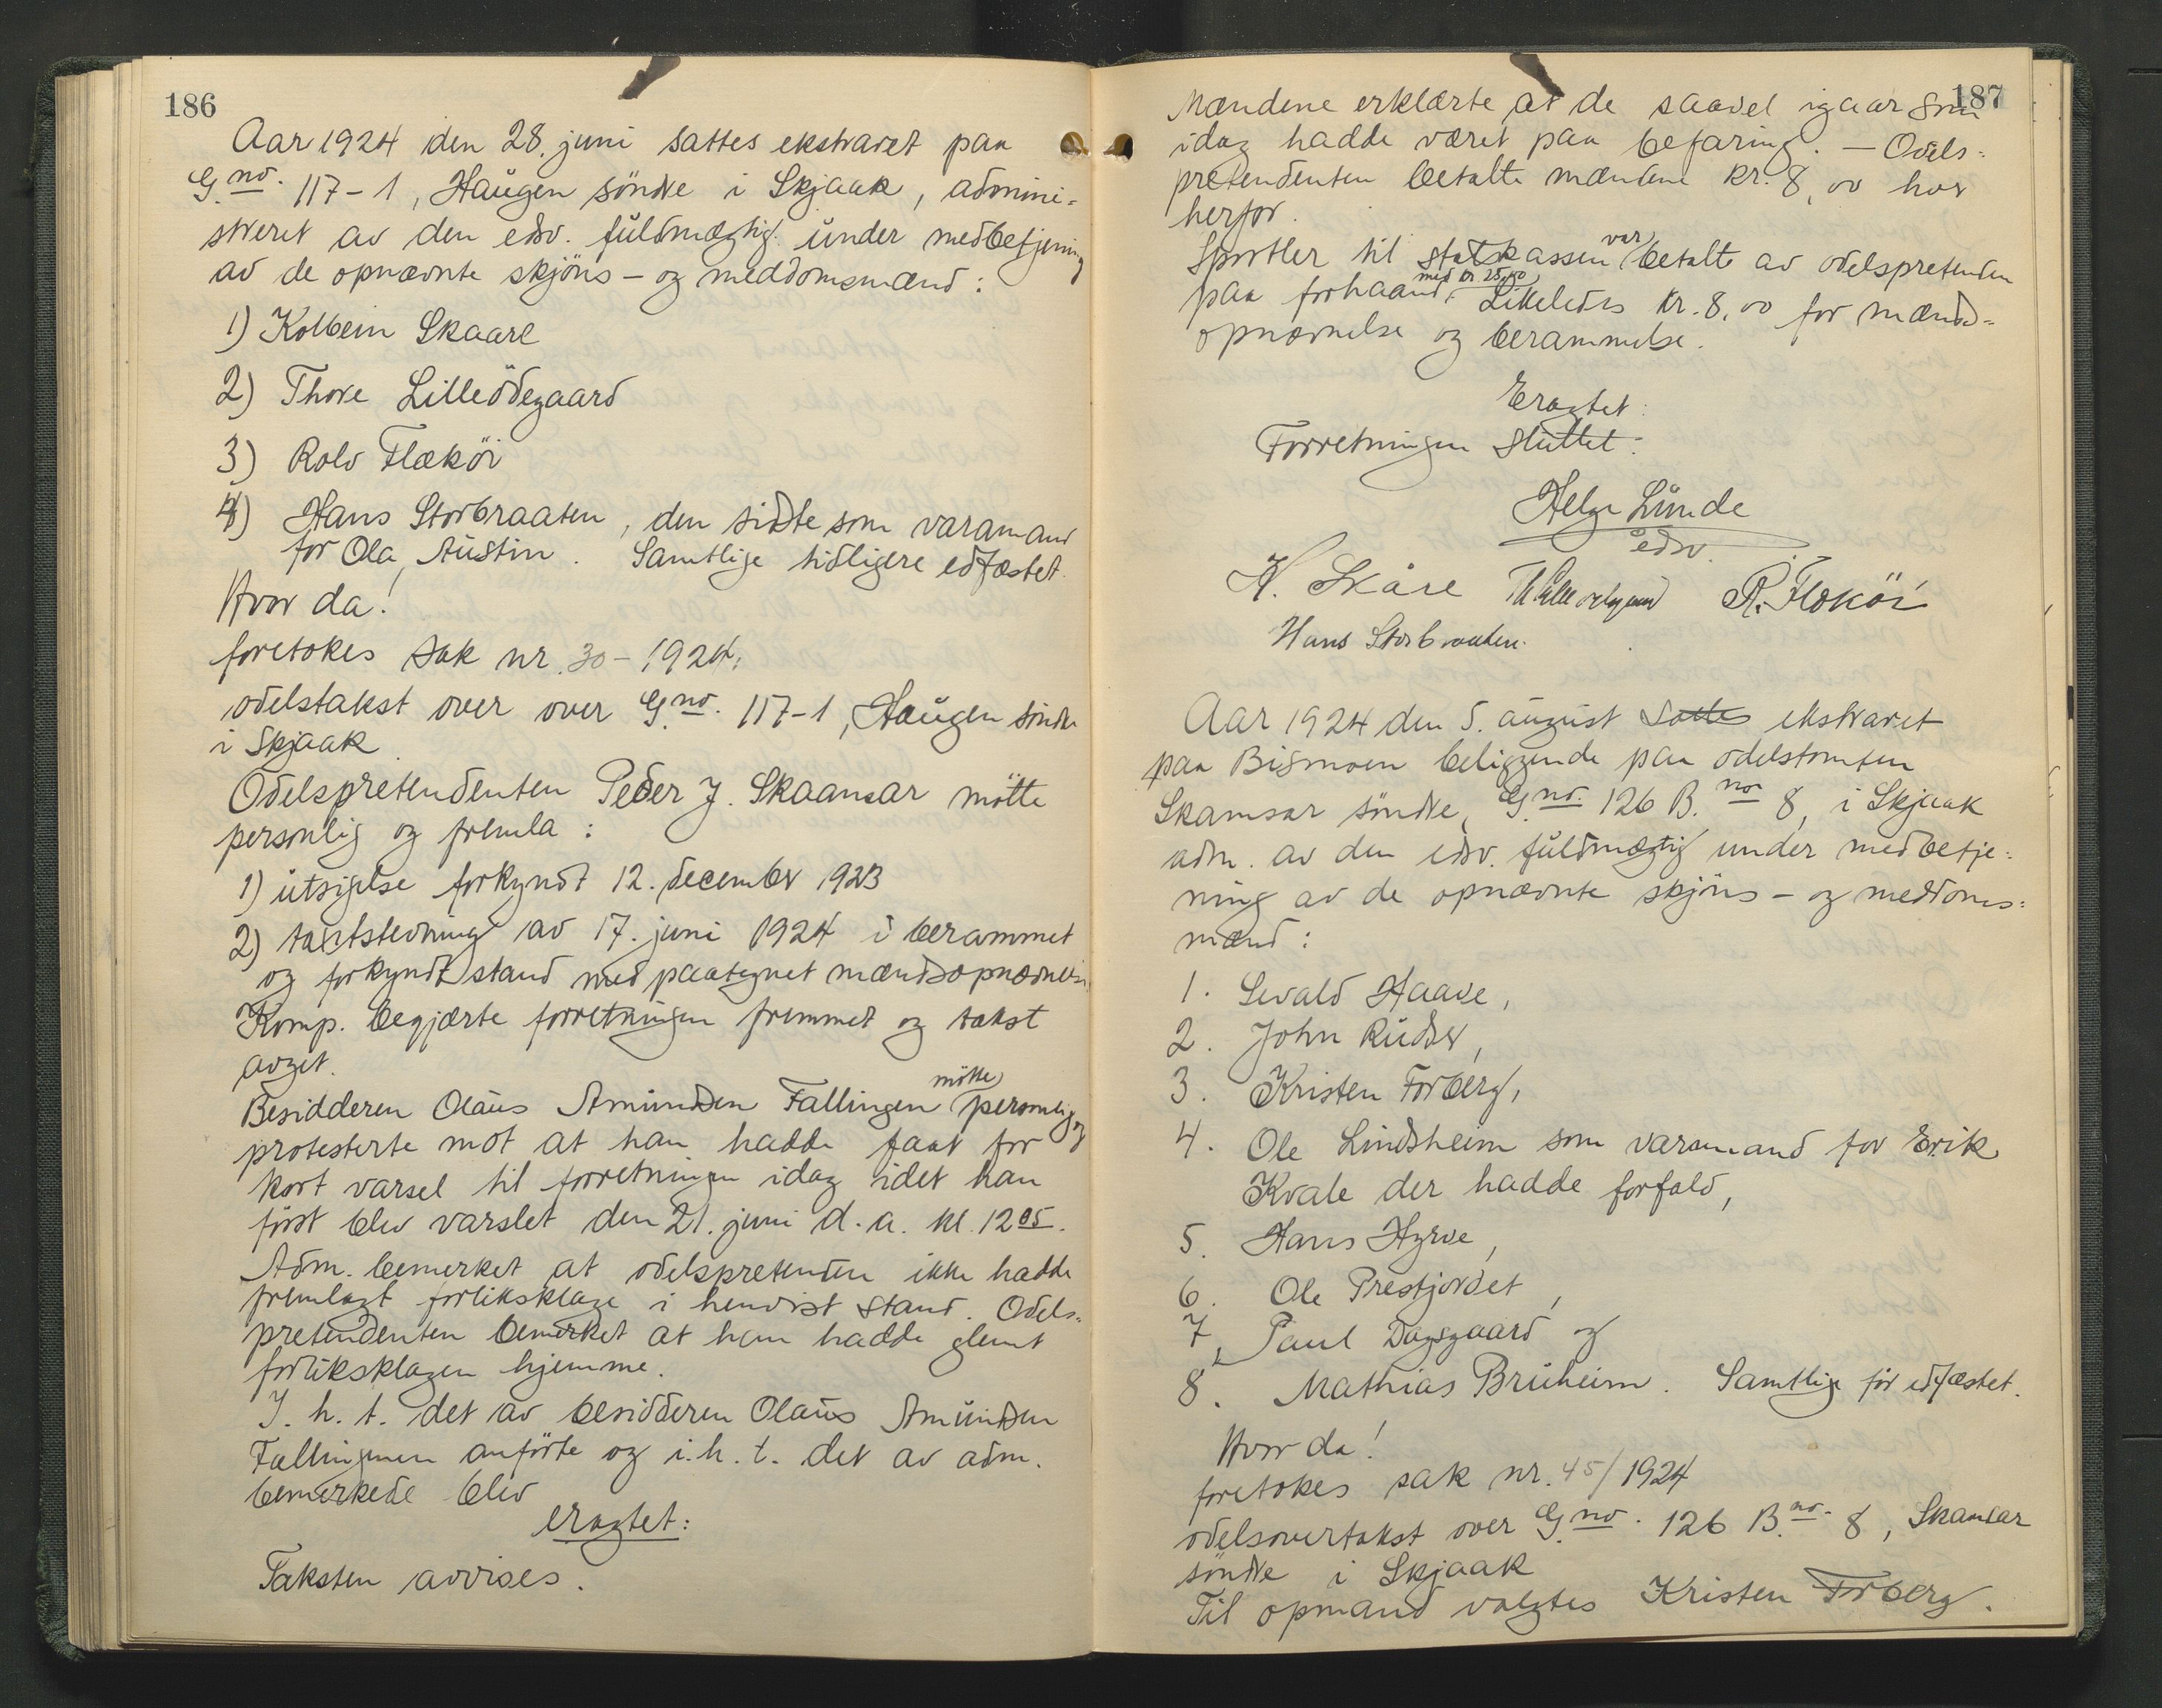 186
Aar 1924 den 28. juni sattes ekstraret paa
G.no. 117-1, Haugen söndre i Skjaak, admini=
streret av den edsv. fuldmægtig under medbetjening
av de opnævnte skjöns- og meddomsmænd:
1) Kolbein Skaare
2) Thore Lilleödegaard
3) Rolv Flæköi
4) Hans Storbraaten, den sidste som varamand
for Ola Austin. Samtlige tidligere edfæstet.
Hvor da!
foretokes sak nr. 30-1924,
odelstakst over over G.no. 117-1, Haugen söndre
i Skjaak
Odelspretendenten Peder J. Skaansar mötte
personlig og fremla:
1) utsigelse forkyndt 12. december 1923
2) takststevning av 17. juni 1924 i berammet
og forkyndt stand med paategnet mændsopnævnelse
Komp. begjærte forretningen fremmet og takst
avget.
Besidderen Olaus Amundsen Fallingen mötte personlig og
protesterte mot at han hadde faat for
kort varsel til forretningen idag idet han
först blev varslet den 21. juni d.a. kl. 12 05.
Adm. bemerket at odelspretendten ikke hadde
fremlagt forliksklage i henvist stand. Odels-
pretendenten bemerket at han hadde glemt
forliksklagen hjemme.
I. h. t. det av besidderen Olaus Amundsen
Fallingmen anförte og i.h.t. det av adm.
bemerkede blev
eragtet:
Taksten avvises.
187
Mændene erklærte at de saavel igaar som
idag hadde været paa befaring. - Odels=
pretendenten betalte mændene kr. 8,00 hver
herfor.
Sportler til statskassen var betalt av odelspretenden
paa forhaand med kr 25,50. Likeledes kr. 8,00 for mænds=
opnævnelse og berammelse.
Eragtet:
Forretningen sluttet.
Helge Lunde
edsv.
K. Skåre Th Lilleödegaard R. Flæköi
Hans Storbraaten.
Aar 1924 den 5. august sattes ekstraret
paa Bismoen beliggende paa odelstomten
Skamsar söndre, G.no. 126 B.no 8, i Skjaak
adm. av den edsv. fuldmægtig under medbetje=
ning av de opnævnte skjöns- og meddoms=
mænd:
1. Sevald Haave,
2. John Rudser,
3. Kristen Forberg,
4. Ole Lindsheim som varamand for Erik
Kvale der hadde forfald,
5. Hans Hyrve,
6. Ole Prestjordet,
7. Paul Dagsgaard og
8. Mathias Bruheim. Samtlige för edfæstet.
Hvor da!
foretokes sak nr. 45/1924
odelsovertakst over G.no. 126 B.no. 8, Skamsar
söndre i Skjaak
Til opmand valgtes Kristen Forberg.